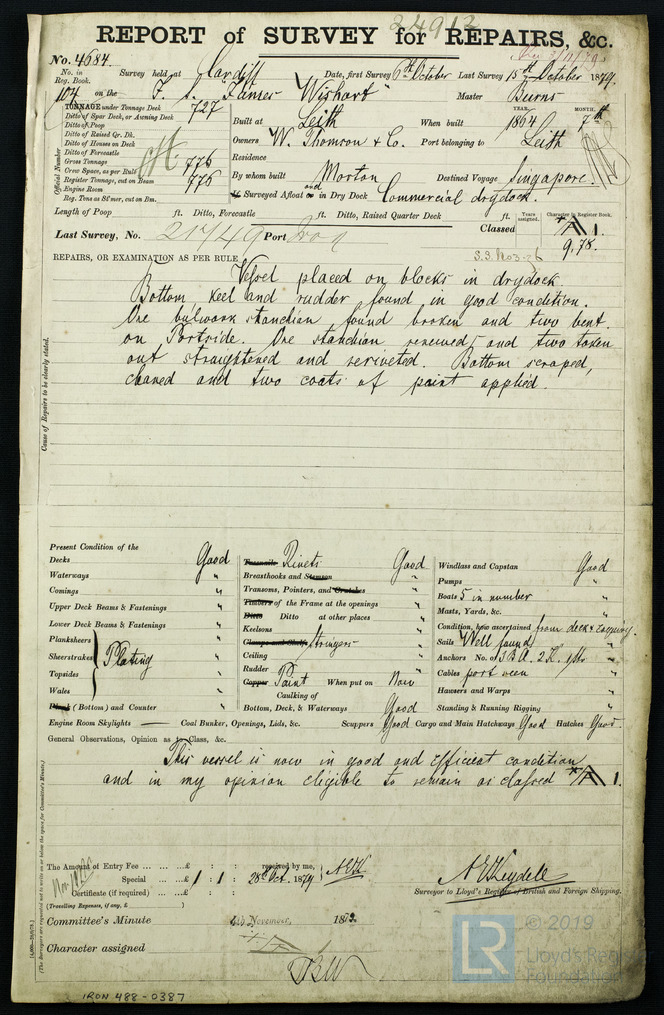 24912
REPORT of SURVEY for REPAIRS, &c.
No. 4684.
No. in Reg. Book. Survey held at Cardiff Date, first Survey 6th October Last Survey 15th October 1879.
104 on the "Wishart" Master Burns
TONNAGE under Tonnage Deck 727
Ditto of Spar Deck, or Awning Deck
Ditto of Poop
Ditto of Raised Qr. Dk.
Ditto of Houses on Deck
Ditto of Forecastle
Gross Tonnage 776
Crew Space, as per Rule
Register Tonnage, cut on Beam 776
Engine Room
Reg. Tons as Stmer, cut on Bm.
Official Number
Built at Leith When built YEAR. 1864 MONTH. 7th
Owners W. Thomson & Co. Port belonging to Leith
Residence
By whom built Morton Destined Voyage Singapore.
If Surveyed Afloat or and in Dry Dock Commercial drydock.
Length of Poop ft. Ditto, Forecastle ft. Ditto, Raised Quarter Deck ft. Years assigned. Character in Register Book.
Last Survey, No. 21749 Port Classed A 1.
9,78.
S.S. No3-76
REPAIRS, OR EXAMINATION AS PER RULE
Vessel placed on blocks in drydock
Bottom, keel and rudder found in good condition.
One bulwark stanchion found broken and two bent
on Portside. One stanchion renewed and two taken
out straightened and reriveted. Bottom scraped,
cleaned and two coats of paint applied.
Cause of Repairs to be clearly stated.
Present Condition of the
Decks Good
Waterways "
Comings "
Upper Deck Beams & Fastenings "
Lower Deck Beams & Fastenings "
Planksheers
Sheerstrakes Plating "
Topsides
Wales
Plank (Bottom) and Counter "
Treenails Rivets Good
Breasthooks and Stemson "
Transoms, Pointers, and Crutches "
Timbers of the Frame at the openings "
Ditto Ditto at other places "
Keelsons "
Clamps and Shelf Stringers "
Ceiling "
Rudder "
Copper Paint When put on Now
Caulking of
Bottom, Deck, & Waterways Good
Windlass and Capstan Good
Pumps "
Boats 5 in number "
Masts, Yards, &c. "
Condition, how ascertained from deck &
Sails Well found "
Anchors No. of 3 B.A. 2 K. 1 Str "
Cables part seen "
Hawsers and Warps "
Standing & Running Rigging "
Engine Room Skylights — Coal Bunker, Openings, Lids, &c. Scuppers Good Cargo and Main Hatchways Good Hatches Good.
General Observations, Opinion as to Class, &c.
This vessel is now in good and efficient condition
and in my opinion eligible to remain as classed A 1.
The Amount of Entry Fee ... ... ...£ : : received by me,
Special ... ...£ 1 : 1 : 28th Oct. 1879
Certificate (if required) ... ...£ : :
(Travelling Expenses, if any, £ )
Surveyor to Lloyd's Register of British and Foreign Shipping.
Committee's Minute November, 187
Character assigned
(The Surveyors are requested not to write on or below the space for Committee's Minute.)
© 2019
LR
Lloyd's Register
Foundation
IRON 488-0387